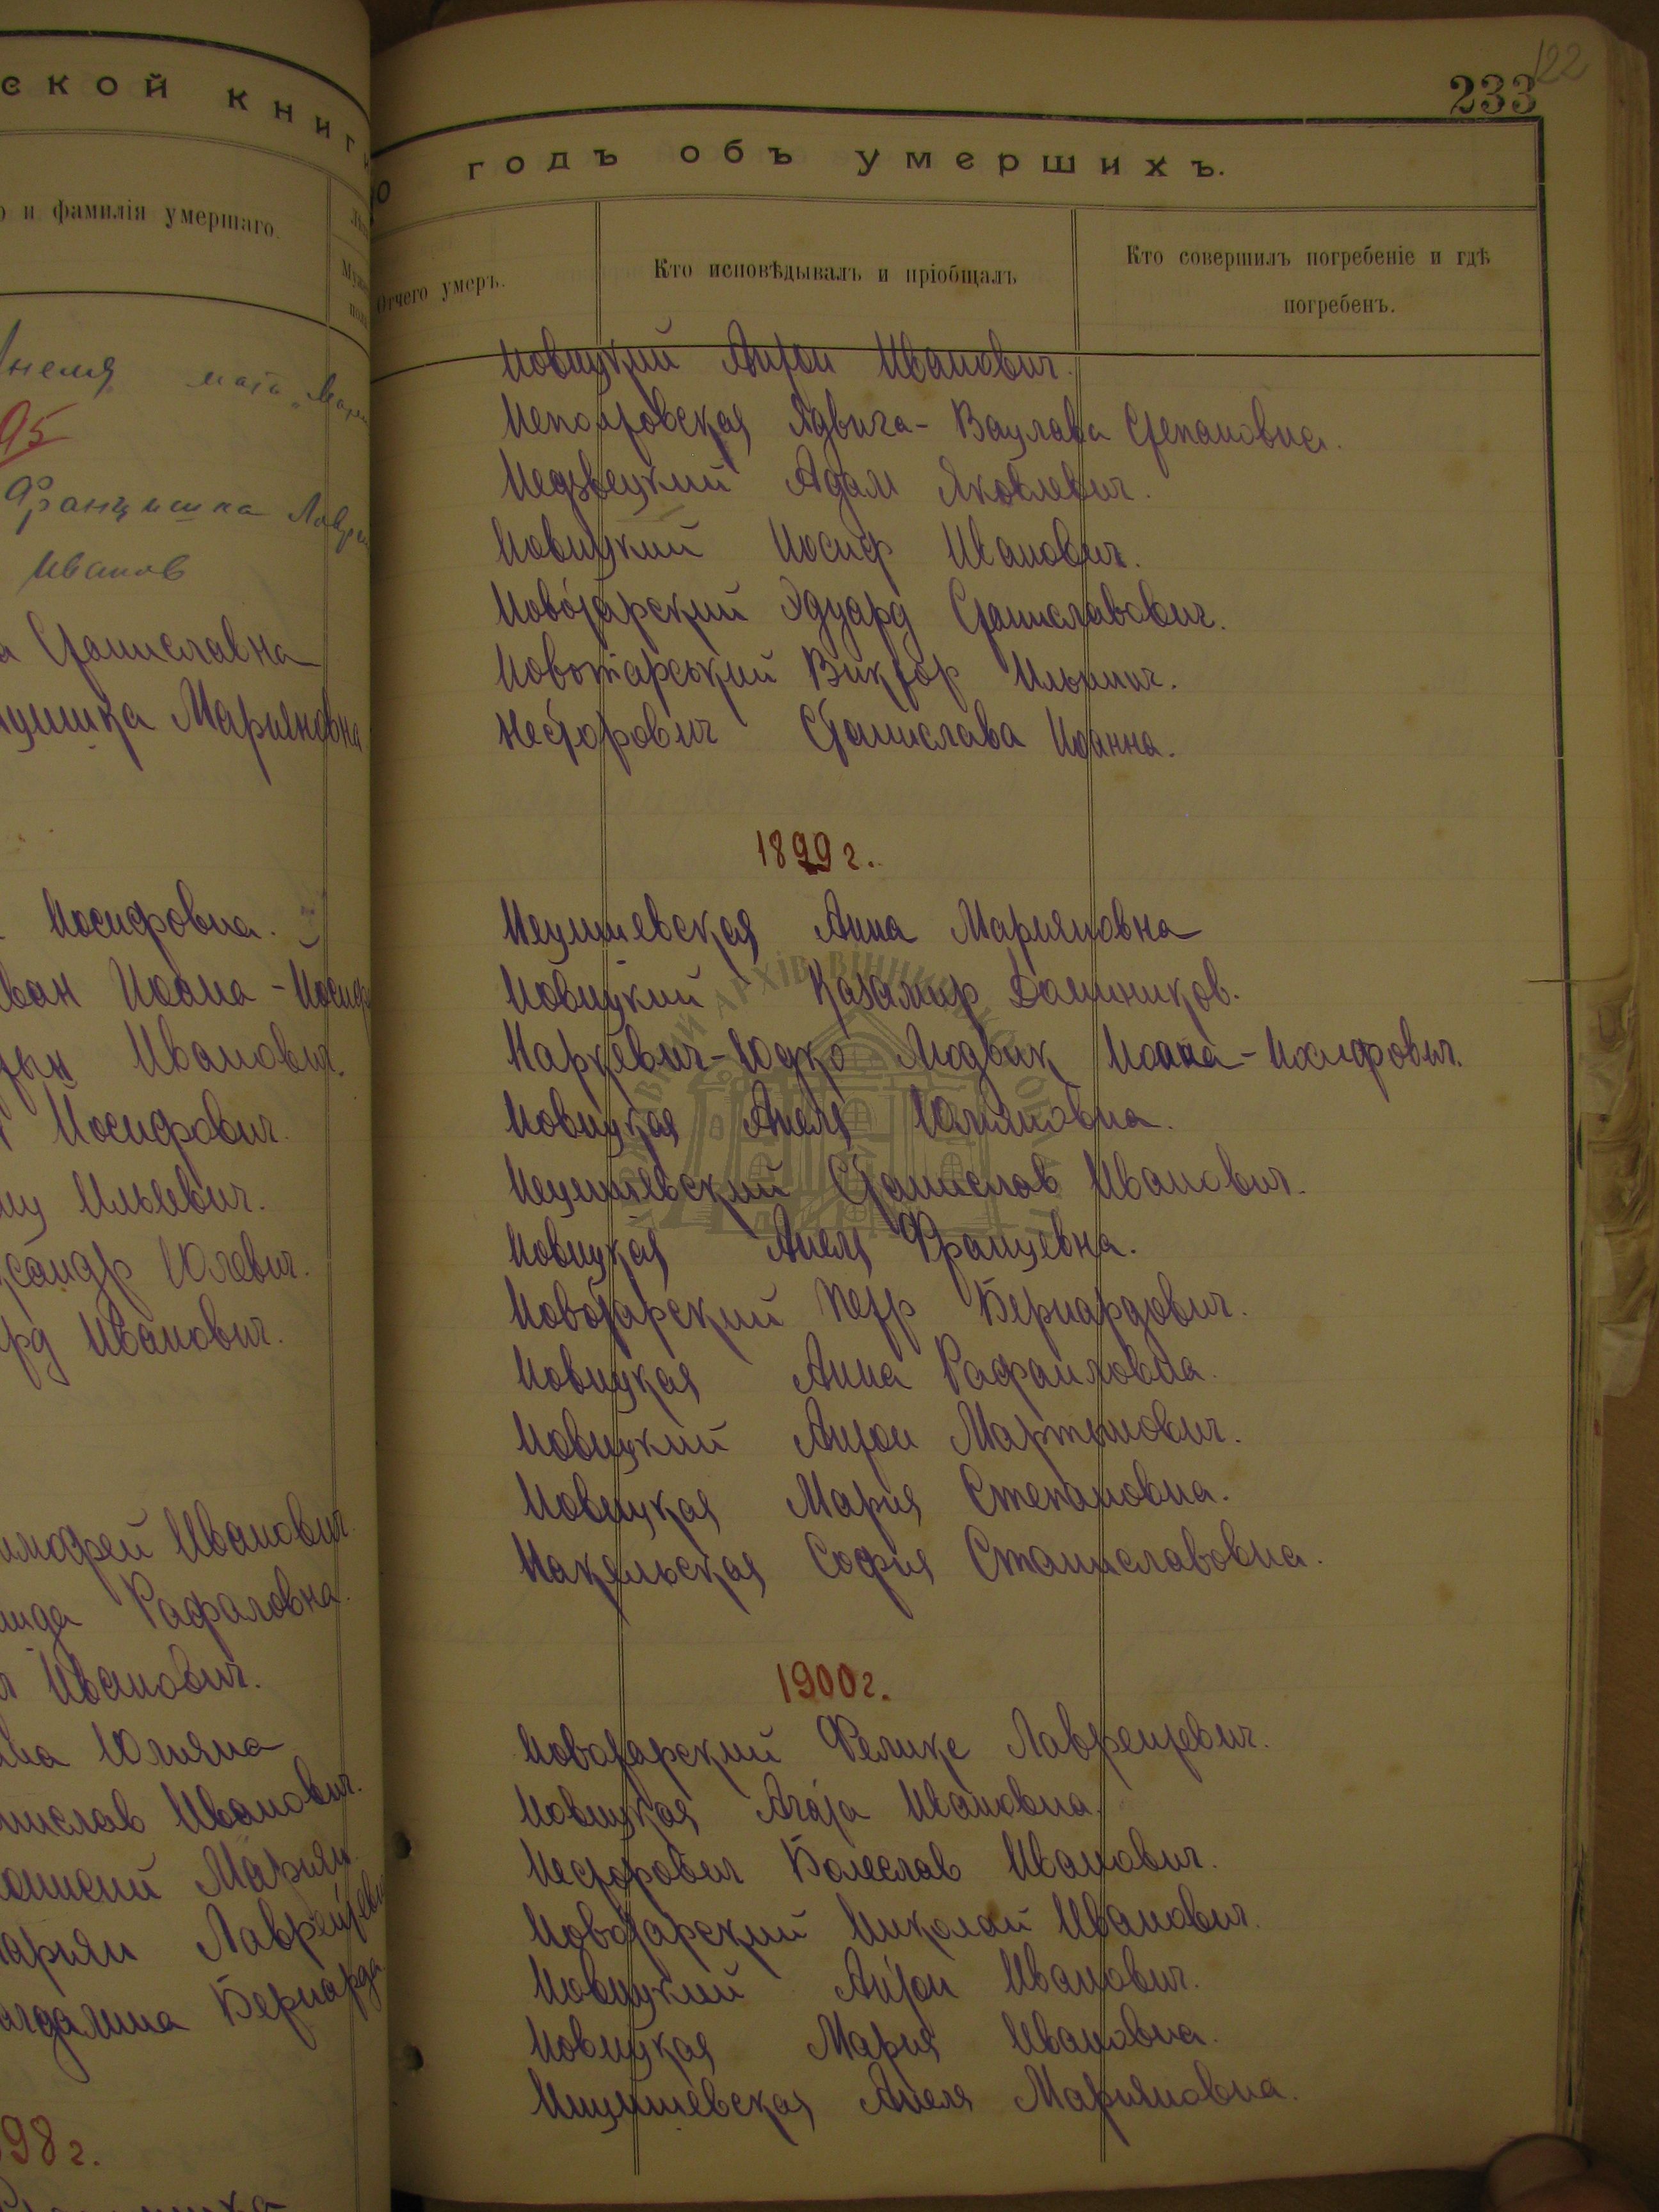 ской книг
о и фамилія умершаго.
Анеля
95
Франчишка Лавр
Иванов
а Станиславна
Марияновна
Иосифовна.
Иоана - Иосиф
Иванович.
Иосифович.
Ильевич.
ксандр Юлевич.
рд Иванович.
имофей Иванович.
Рафаловна.
Иванович.
Юлияна
нислав Иванович.
Мариян.
ариян Лаврентеви
агдалина Бернарда.
98 г.
122
233
годъ объ умершихъ.
Отчего умеръ.
Кто исповѣдывалъ и пріобщалъ
Кто совершилъ погребеніе и гдѣ
погребенъ.
Новицкий Антон Иванович.
Непотровская Ядвига - Вацлава Степановна.
Недзвецкий Адам Яковлевич.
Новицкий Иосиф Иванович.
Новотарский Эдуард Станиславович.
Новотарський Виктор Ильинич.
Несторович Станислава Иоанна.
1899 г.
Неушевская Анна Марияновна
Новицкий Казамир Домиников.
Наркевич-Юдко Людвик Иоана - Иосифович.
Новицкая Анеля Юлияновна.
Станислав Иванович.
Новицкая Анеля Францевна.
Новотарский Петр Бернардович.
Новицкая Анна Рафаиловна.
Новицкий Антон Мартынович.
Новицкая Мария Степановна.
Накельская София Станиславовна.
1900 г.
Новотарский Феликс Лаврентевич.
Новицкая Агата Ивановна.
Несторович Болеслав Иванович.
Новотарский Николай Иванович.
Новицкий Антон Иванович.
Новицкая Мария Ивановна.
Анеля Марияновна.